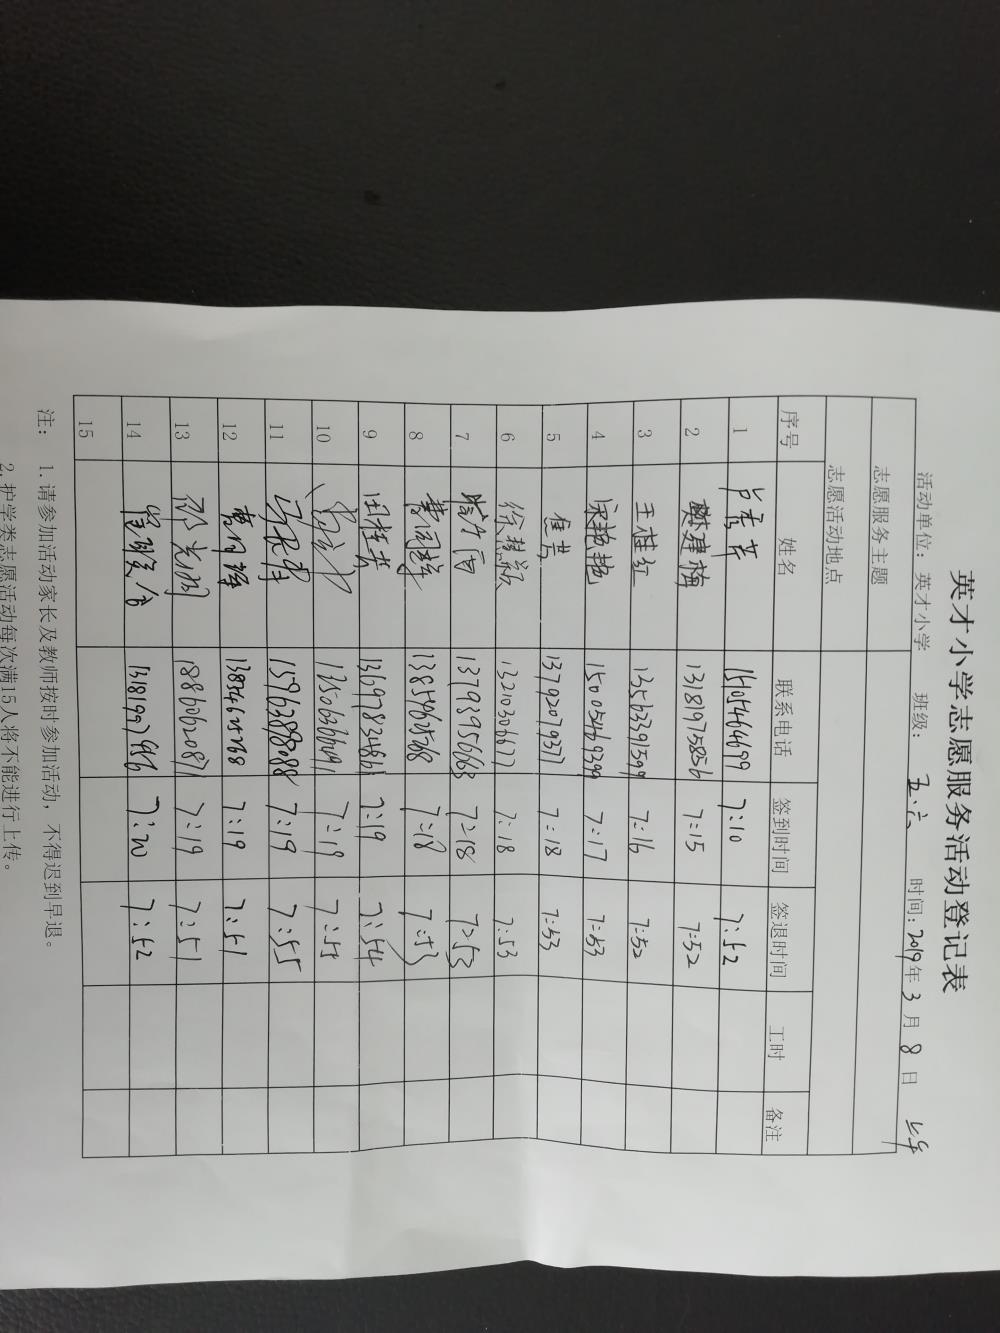 英才小学志愿服务活动登记表
活动单位：英才小学 班级：五.六 时间：2019年3月8日 上午
志愿服务主题
志愿活动地点
序号 姓名 联系电话 签到时间 签退时间 工时 备注
1 7:10 7:52
2 樊建梅 13181975856 7:15 7:52
3 王桂红 13563391599 7:16 7:52
4 宋艳艳 15005469399 7:17 7:53
5 崔芸 13792079371 7:18 7:53
6 徐慧颖 13210306617 7:18 7:53
7 13793956663 7:18 7:53
8 13854625268 7:18 7:53
9 田桂芳 13697834861 7:19 7:54
10 7:19 7:55
11 15962898088 7:19 7:55
12 13854625268 7:19 7:51
13 邵光明 18860620871 7:19 7:51
14 13181997956 7:20 7:52
15
注： 1.请参加活动家长及教师按时参加活动，不得迟到早退。
2.护学类志愿活动每次满15人将不能进行上传。